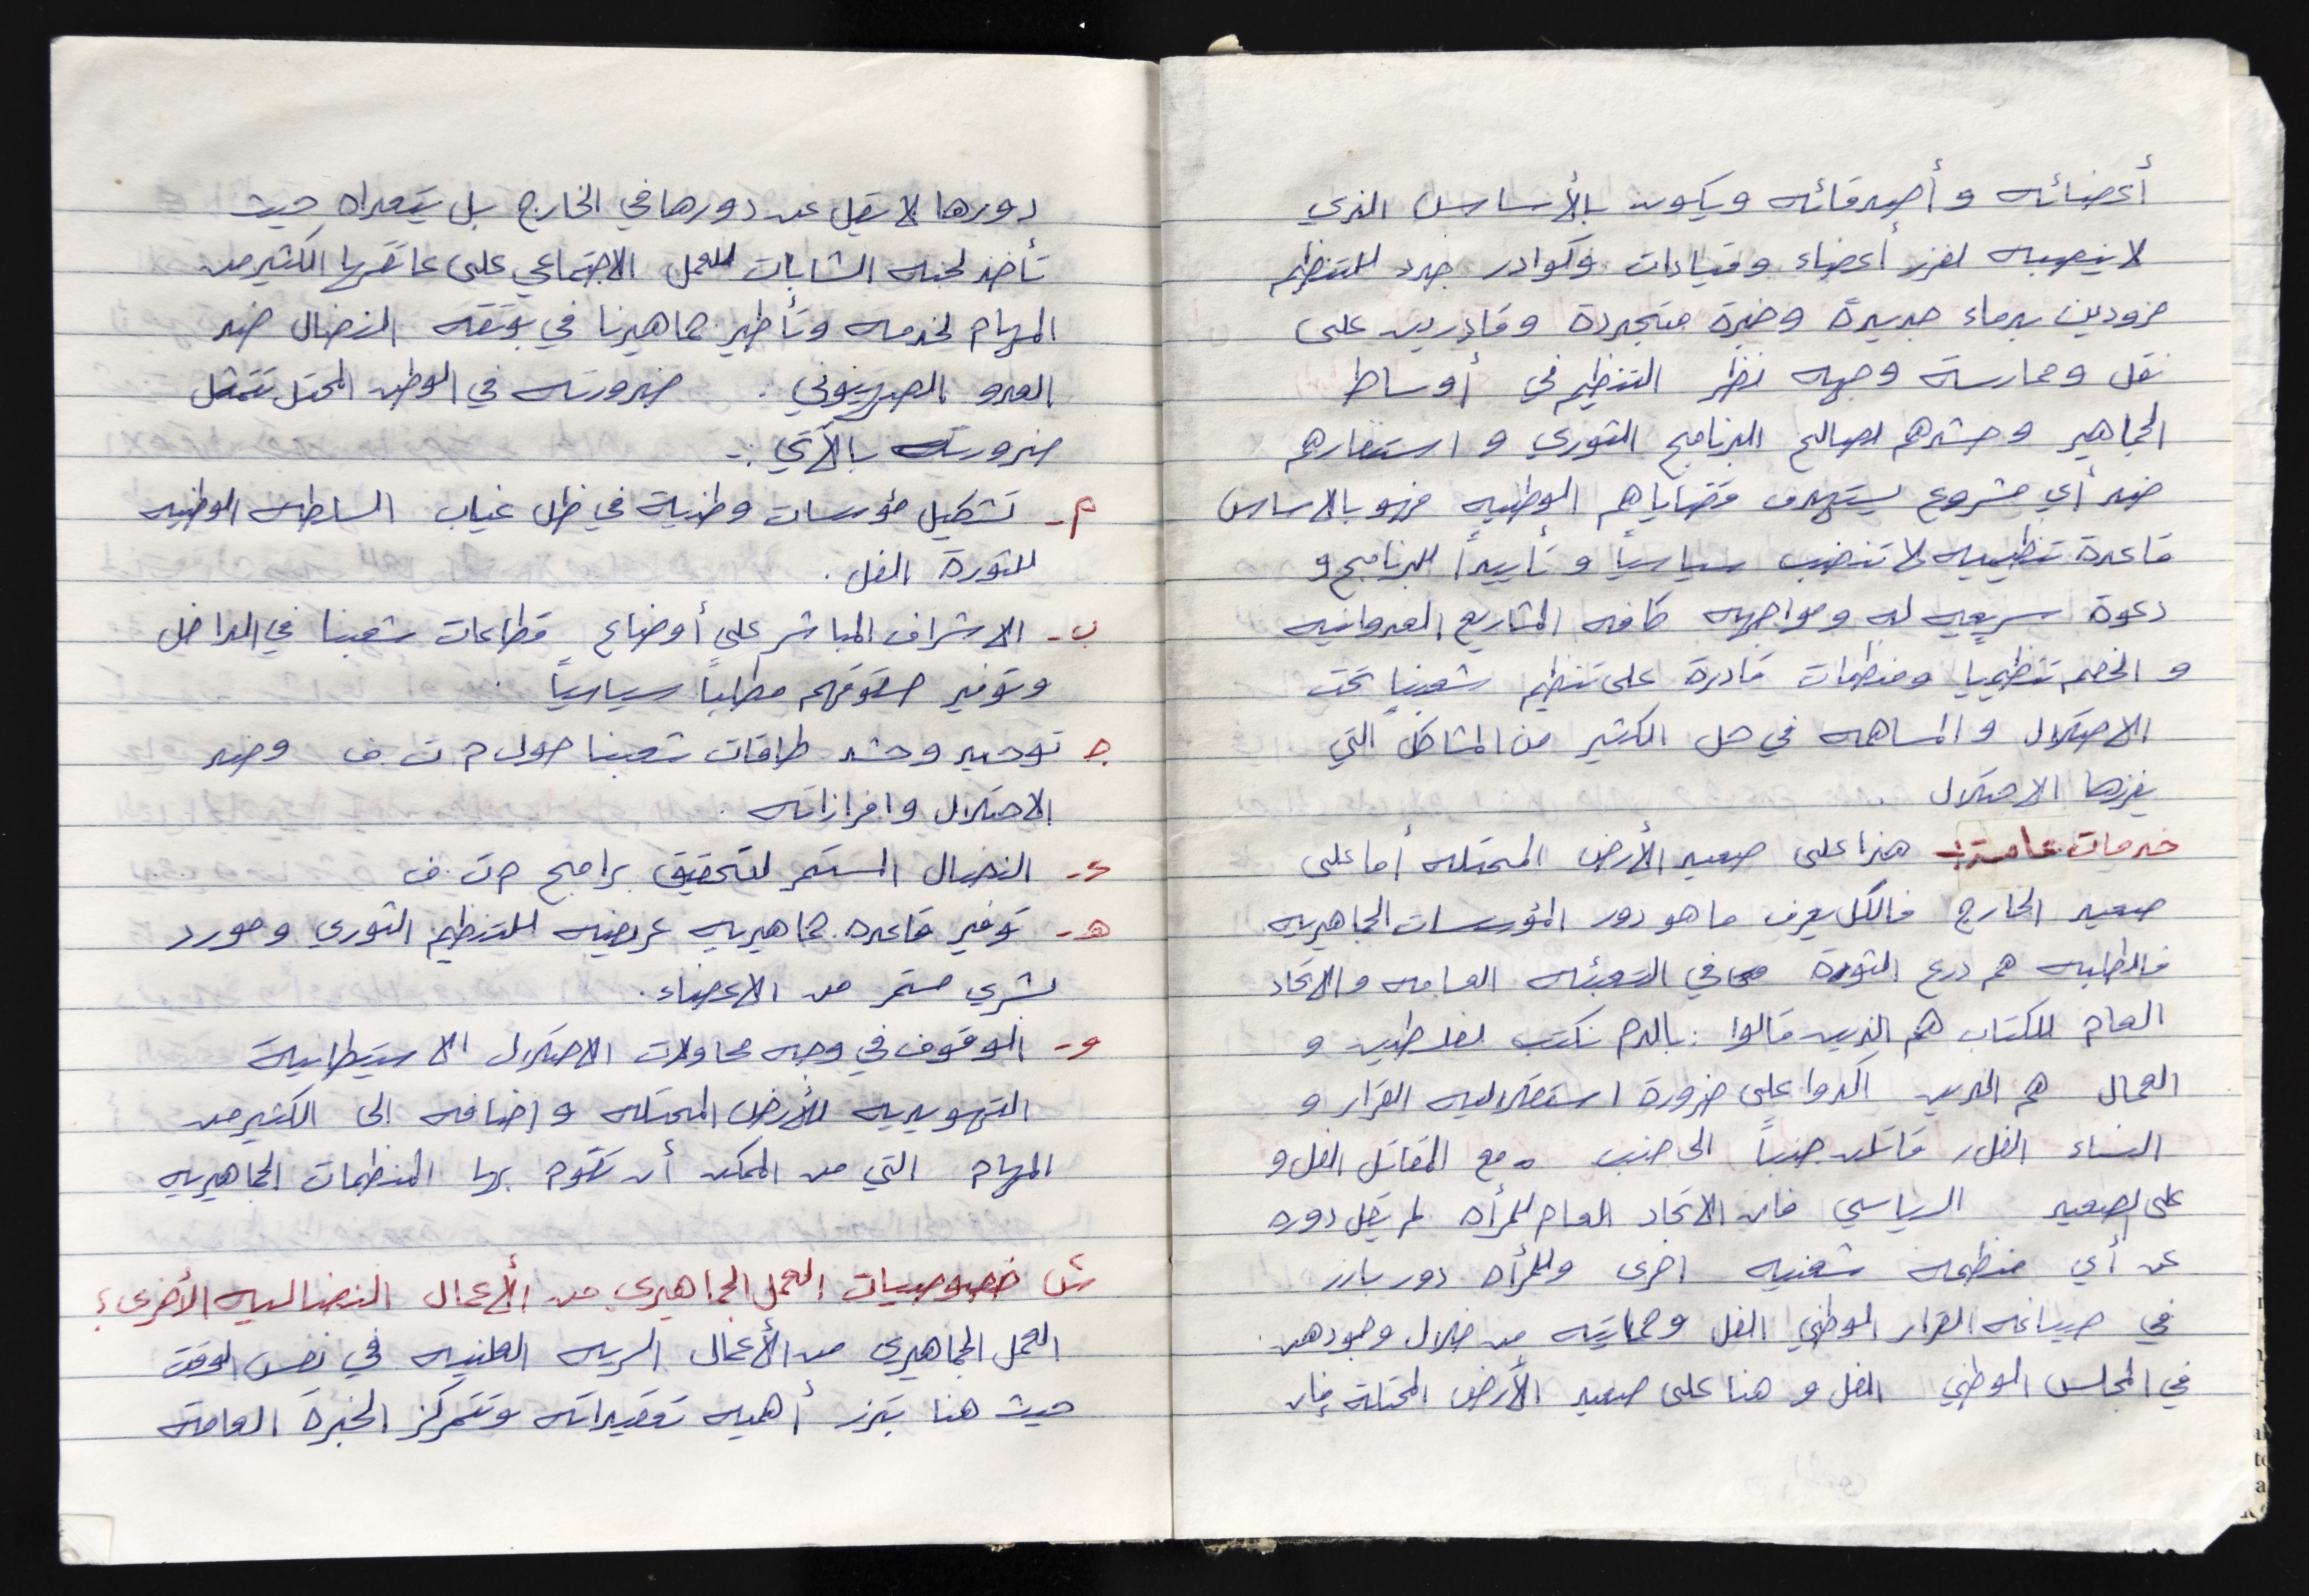 أعضائه وأصدقائه ويكون بالأساس الذي
لا ينصبه لفرز أعضاء وقيادات وكوادر جدد للتنظيم
مزودين بدماء جديدة وخبرة متجددة وقادرين على
نقل وممارسة وجهه نظر التنظيم في أوساط
الجماهير وحشدهم لصالح البرنامج الثوري و استنفارهم
ضد أي مشروع يستهدف قضاياهم الوطنيه فهو بالاساس
قاعدة تنظيميه لا تنضب سياسياً وتأييداً للبرنامج و
دعوة سريعيه له ومواجهه كافه المشاريع العدوانيه
و الخصم تنظيميا ومنظمات قادرة على تنظيم شعبنا تحت
الاحتلال والمساهمه في حل الكثير من المشاكل التي
يفرزها الاحتلال .
خدمات عامة :- هذا على صعيد الأرض المحتله أما على
صعيد الخارج فالكل يعرف ما هو دور المؤسسات الجماهيريه
فالطلبه هم درع الثورة في التعبئه العامه والاتحاد
العام للكتاب هم الذين قالوا : بالدم نكتب لفلسطين و
العمال هم الذين اكدوا على ضرورة استقلاليه القرار و
النساء الفل قاتلن جنباً الى جنب مع المقاتل الفل و
على الصعيد السياسي فان الاتحاد العام للمرأه لم يقل دوره
عن أي منظمه شعبيه اخرى وللمرأه دور بارز
في صياغه القرار الوطني الفل وحمايته من خلال وجودهن
في المجلس الوطني الفل و هنا على صعيد الأرض المحتلة فإن
دورها لا يقل عن دورها في الخارج بل يتعداه حيث
تأخذ لجنه الشابات للعمل الاجتماعي على عاتقها الكثير من
المهام لخدمه وتأطير جماهيرنا في بوتقه النضال ضد
العدو الصهيوني . ضرورته في الوطن المحتل تتمثل
ضرورته بالآتي :-
م- تشكيل مؤسسات وطنية في ظل غياب السلطه الوطنيه
للثورة الفل .
ب- الاشراف المباشر على أوضاع قطاعات شعبنا في الداخل
وتوفير حقوقهم مطلبياً سياسياً .
ج توحيد وحشد طاقات شعبنا حول م ت ف وضد
الاحتلال وافرازاته .
د- النضال المستمر لتحقيق برامج م ت . ف
هـ- توفير قاعده جماهيريه عريضه للتنظيم الثوري ومورد
بشري مستمر من الاعضاء .
و- الوقوف في وجه محاولات الاحتلال الاستيطانية
التهويديه للأرض المحتله و اضافه الى الكثير من
المهام التي من الممكن أن تقوم بها المنظمات الجماهيريه
س خصوصيات العمل الجماهيري من الأعمال النضاليه الأخرى ؟
العمل الجماهيري من الأعمال السريه العلنيه في نفس الوقت
حيث هنا تبرز أهميه تعقيداته وتتمركز الخبرة العامة